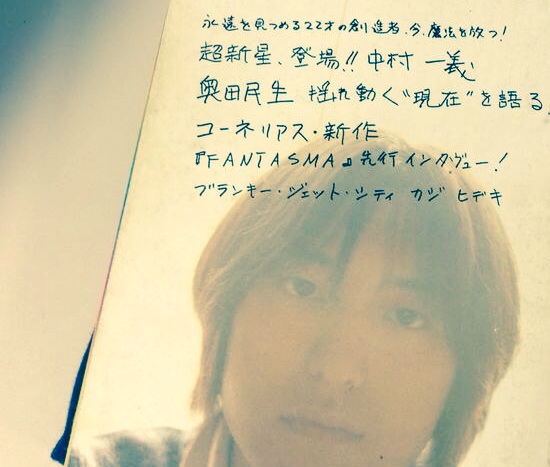 永遠を見つめる22才の創造者、今、魔法を放つ!
超新星、登場!! 中村 一義
奥田民生 揺れ動く“現在”を語る
コーネリアス・新作
『FANTASMA』先行インタヴュー!
ブランキー・ジェット・シティ カジ ヒデキ